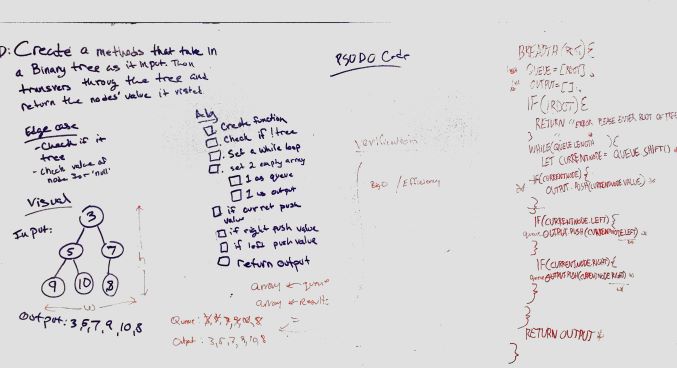 D: Create a methods that take in
a Binary tree as it Input. Then
transvers throug the tree and
return the nodes' value it visted.
Edge case
- Check if it
tree
- check value of
node is or 'null'
Visual
Input:
3
5 7
9 10 8
h
w
Output: 3,5,7,9,10,8
Alg
Create function
Check if !tree
Set a while loop
set 2 empty array
1 as queue
1 as output
if curret push
value
if right push value
if left push value
return output
array ← queue
array ← results
Queue: 3, 5, 7, 9, 10, 8
Output: 3, 5, 7, 9, 10, 8
PSODO Code
Verification
BigO / Efficiency
BREADTH (
QUEUE = [ROOT];
OUTPUT = [];
IF (!ROOT) {
RETURN "ERROR PLEASE ENTER ROOT OF TREE
}
WHILE (QUEUE.LENGTH ) {
LET CURRENTNODE = QUEUE.SHIFT()
IF (CURRENTNODE) {
OUTPUT.PUSH(CURRENTNODE.VALUE)
}
IF (CURRENTNODE.LEFT) {
queue OUTPUT.PUSH (CURRENTNODE.LEFT)
}
IF (CURRENTNODE.RIGHT) {
queue OUTPUT.PUSH (CURRENTNODE.RIGHT)
}
}
}
RETURN OUTPUT
}